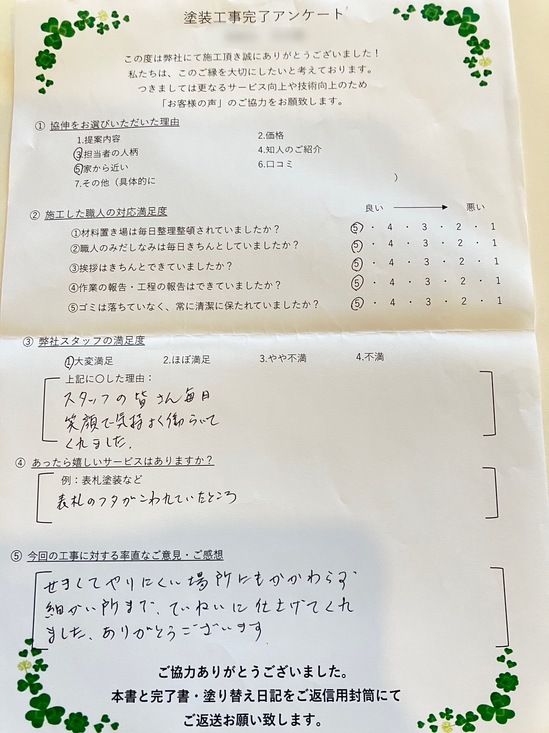 塗装工事完了アンケート
この度は弊社にて施工頂き誠にありがとうございました！
私たちは、このご縁を大切にしたいと考えております。
つきましては更なるサービス向上や技術向上のため
「お客様の声」のご協力をお願致します。
① 協伸をお選びいただいた理由
1.提案内容 2.価格
3.担当者の人柄 4.知人のご紹介
5.家から近い 6.口コミ
7.その他（具体的に ）
② 施工した職人の対応満足度 良い 悪い
①材料置き場は毎日整理整頓されていましたか？ 5 ・ 4 ・ 3 ・ 2 ・ 1
②職人のみだしなみは毎日きちんとしていましたか？ 5 ・ 4 ・ 3 ・ 2 ・ 1
③挨拶はきちんとできていましたか？ 5 ・ 4 ・ 3 ・ 2 ・ 1
④作業の報告・工程の報告はできていましたか？ 5 ・ 4 ・ 3 ・ 2 ・ 1
⑤ゴミは落ちていなく、常に清潔に保たれていましたか？ 5 ・ 4 ・ 3 ・ 2 ・ 1
③ 弊社スタッフの満足度
1.大変満足 2.ほぼ満足 3.やや不満 4.不満
上記に〇した理由：
スタッフの皆さん毎日
笑顔で気持よく働らいて
くれました。
④ あったら嬉しいサービスはありますか？
例：表札塗装など
表札のフタがこわれていたところ
⑤ 今回の工事に対する率直なご意見・ご感想
せまくてやりにくい場所にもかかわらず
細かい所まで、ていねいに仕上げてくれ
ました、ありがとうございます
ご協力ありがとうございました。
本書と完了書・塗り替え日記をご返信用封筒にて
ご返送お願い致します。